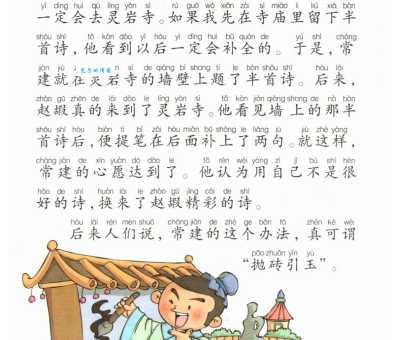 yí dìng huì qù líng yán sì rú guǒ wǒ xiān zài sì miào lǐ liú xià bàn
一定会去灵岩寺。如果我先在寺庙里留下半
shǒu shī tā kàn dào yǐ hòu yí dìng huì bǔ quán de yú shì cháng
首诗，他看到以后一定会补全的。于是，常
jiàn jiù zài líng yán sì de qiáng bì shang tí le bàn shǒu shī hòu lái
建就在灵岩寺的墙壁上题了半首诗。后来，
zhào gǔ zhēn de lái dào le líng yán sì tā kàn jiàn qiáng shang de nà bàn
赵嘏真的来到了灵岩寺。他看见墙上的那半
shǒu shī hòu biàn tí bǐ zài hòu miàn bǔ shàng le liǎng jù jiù zhè yàng
首诗后，便提笔在后面补上了两句。就这样，
cháng jiàn de xīn yuàn dá dào le tā rèn wéi yòng zì jǐ bú shì hěn
常建的心愿达到了。他认为用自己不是很
hǎo de shī huàn lái le zhào gǔ jīng cǎi de shī
好的诗，换来了赵嘏精彩的诗。
hòu lái rén men shuō cháng jiàn de zhè ge bàn fǎ zhēn kě wèi
后来人们说，常建的这个办法，真可谓
pāo zhuān yǐn yù
“抛砖引玉”。